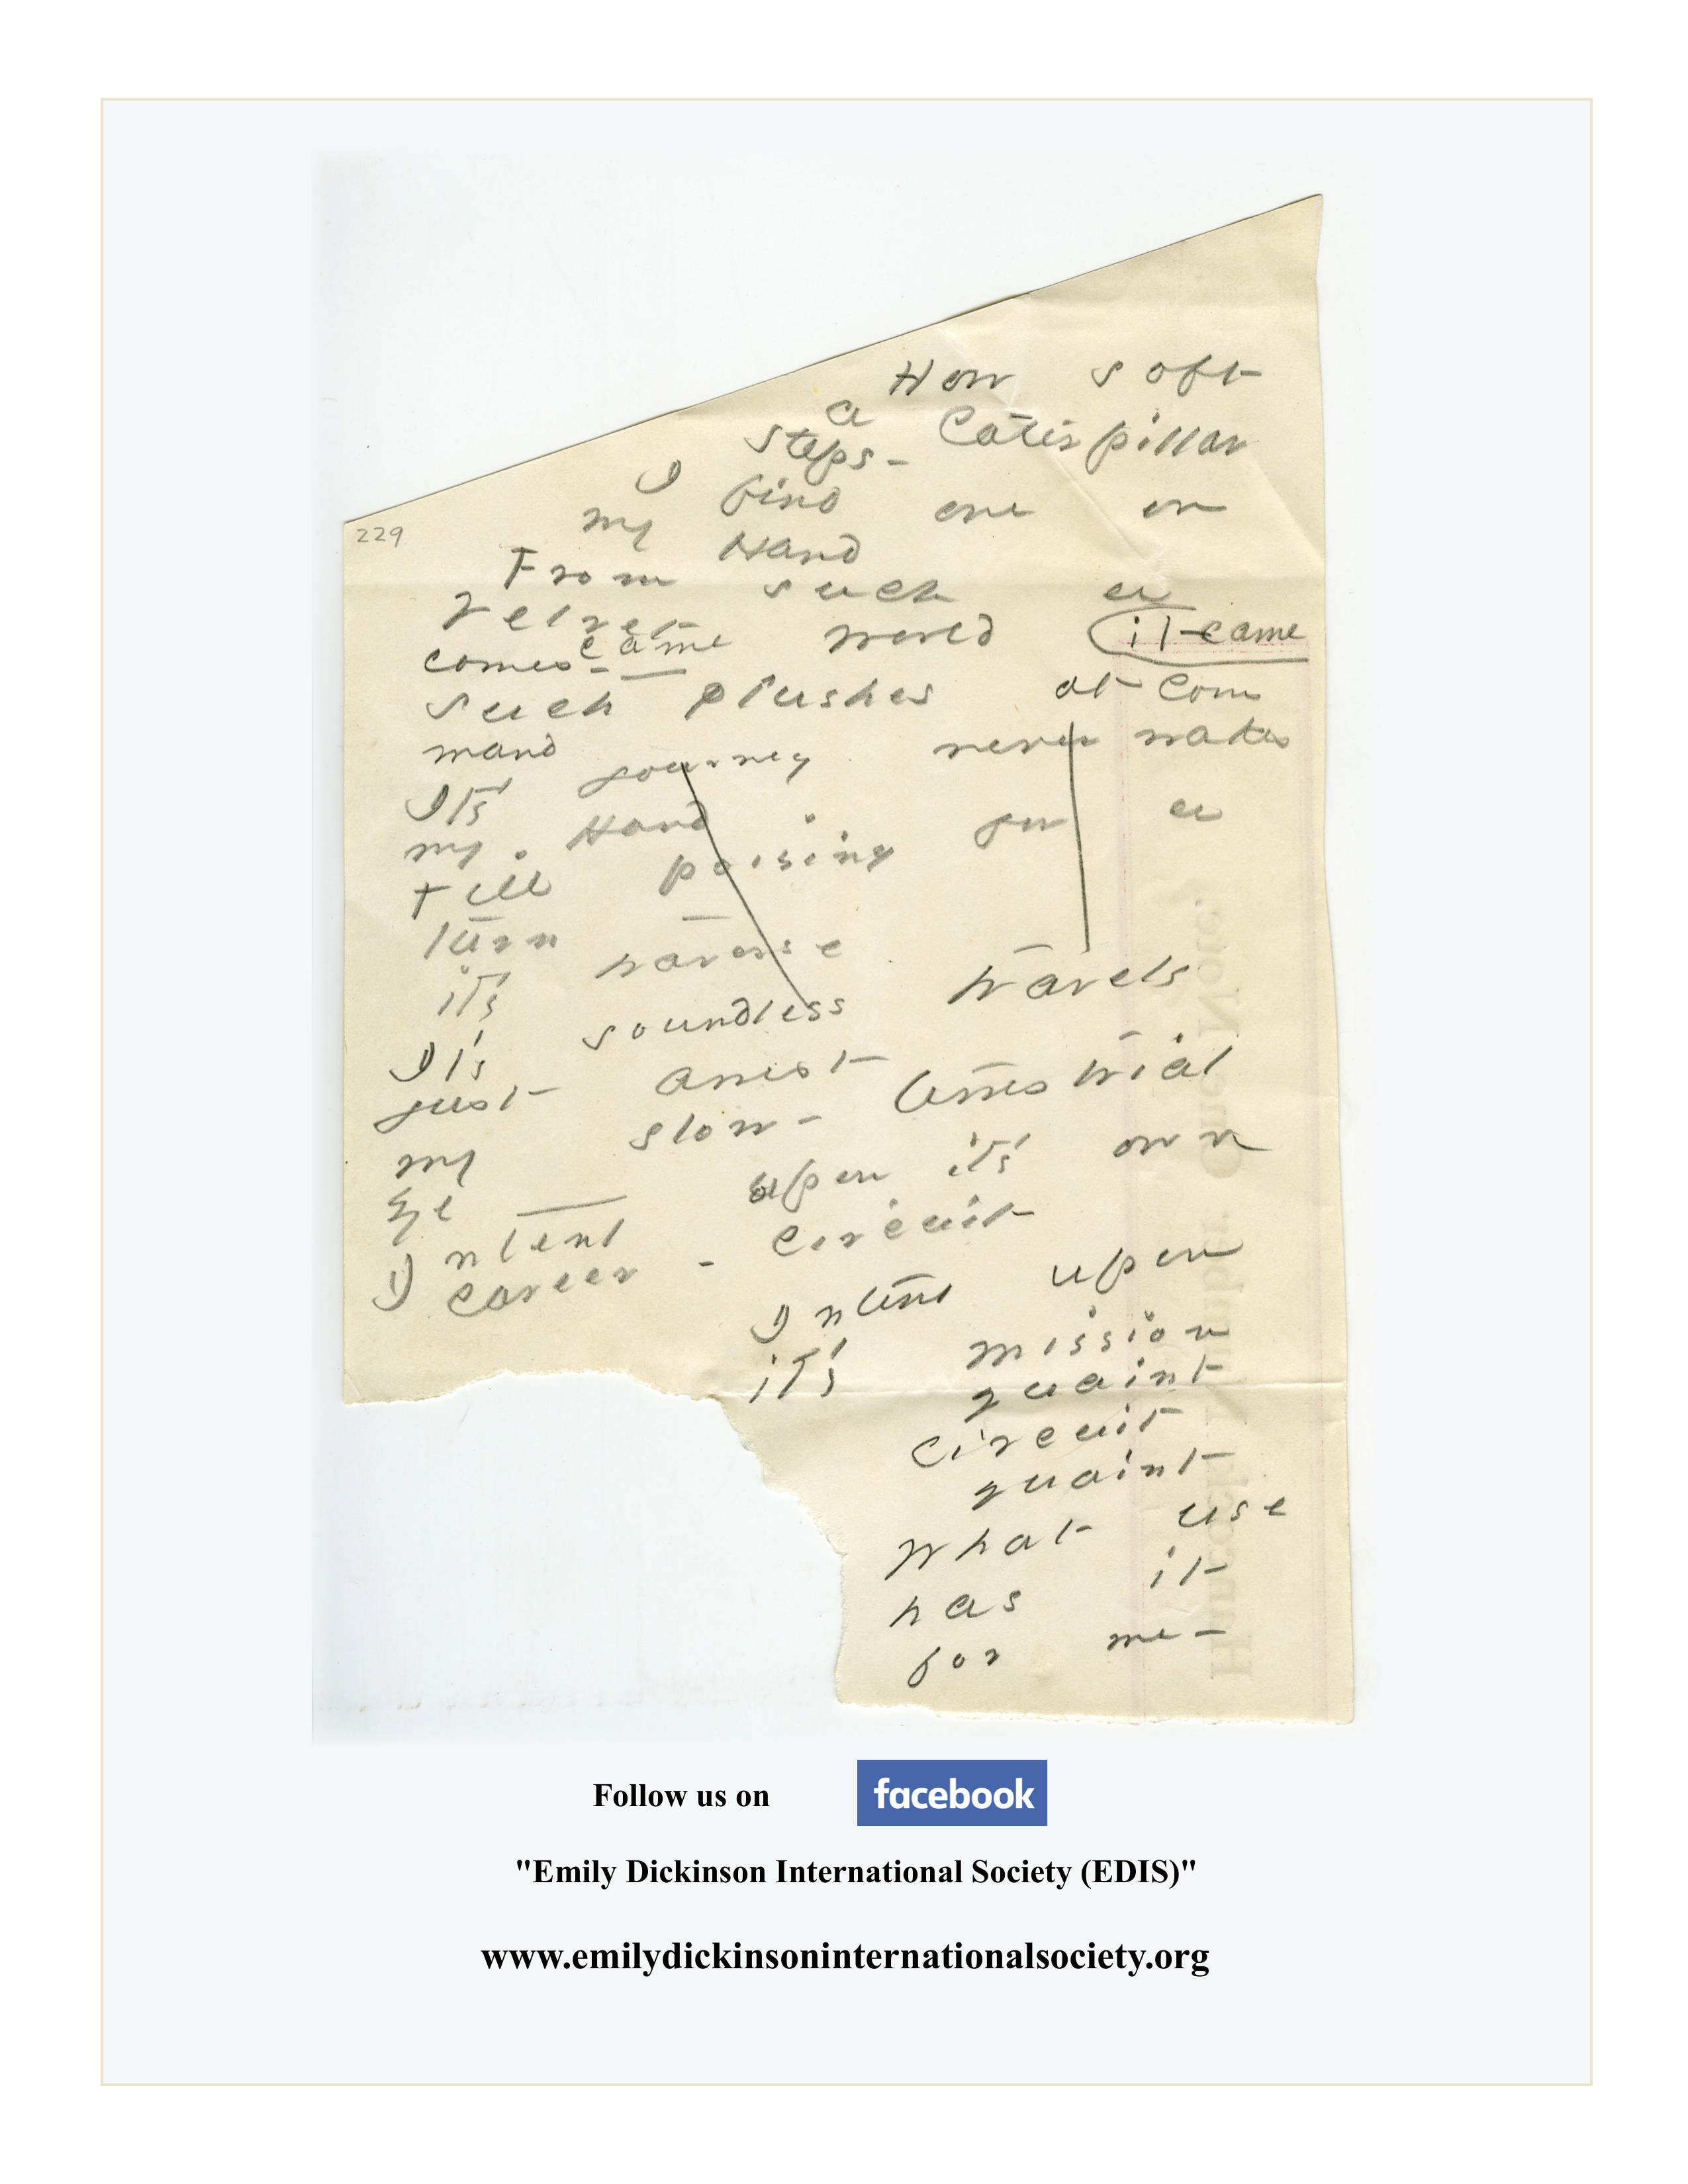 How soft
a Caterpillar
steps -
I find one on
my Hand
229
From such a
velvet world it came
comes - came
Such plushes at Com
mand
It's journey never wakes
my Hand
till poising for a
turn
it's traverse
It's soundless travels
just arrest
my slow - terrestrial
Eye
Intent upon it's own
career - circuit
Intent upon
it's mission
quaint
circuit
quaint
What use
has it
for me -
Follow us on facebook
"Emily Dickinson International Society (EDIS)"
www.emilydickinsoninternationalsociety.org